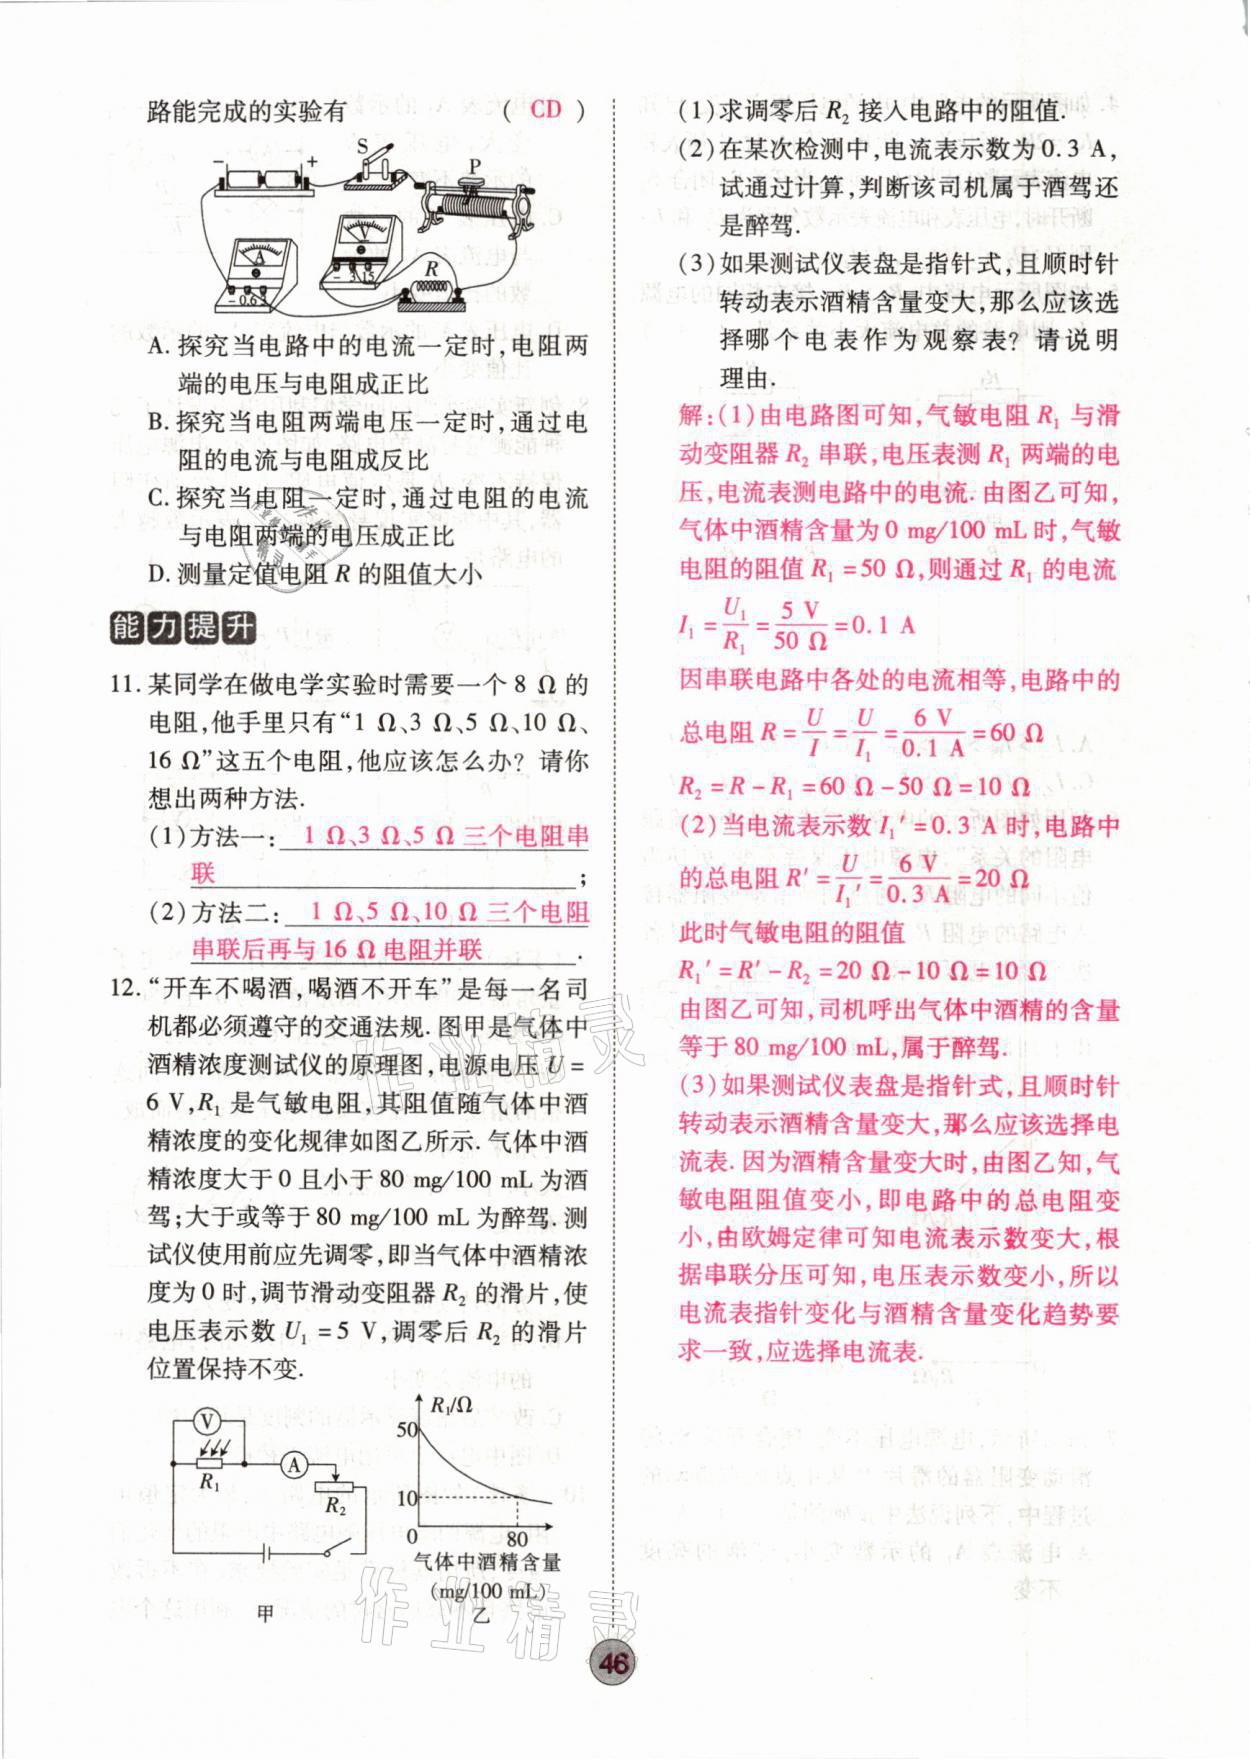 路能完成的实验有 ( CD )
- +
S
P
A
- 0.6 3
V
- 3 15
R
A. 探究当电路中的电流一定时,电阻两
端的电压与电阻成正比
B. 探究当电阻两端电压一定时,通过电
阻的电流与电阻成反比
C. 探究当电阻一定时,通过电阻的电流
与电阻两端的电压成正比
D. 测量定值电阻 R 的阻值大小
能力提升
11. 某同学在做电学实验时需要一个 8 Ω 的
电阻,他手里只有“1 Ω、3 Ω、5 Ω、10 Ω、
16 Ω”这五个电阻,他应该怎么办? 请你
想出两种方法.
(1)方法一: 1 Ω、3 Ω、5 Ω 三个电阻串
联 ;
(2)方法二: 1 Ω、5 Ω、10 Ω 三个电阻
串联后再与 16 Ω 电阻并联 .
12. “开车不喝酒,喝酒不开车”是每一名司
机都必须遵守的交通法规. 图甲是气体中
酒精浓度测试仪的原理图,电源电压 U =
6 V,R₁ 是气敏电阻,其阻值随气体中酒
精浓度的变化规律如图乙所示. 气体中酒
精浓度大于 0 且小于 80 mg/100 mL 为酒
驾;大于或等于 80 mg/100 mL 为醉驾. 测
试仪使用前应先调零,即当气体中酒精浓
度为 0 时,调节滑动变阻器 R₂ 的滑片,使
电压表示数 U₁ = 5 V,调零后 R₂ 的滑片
位置保持不变.
V
R₁
A
R₂
甲
R₁/Ω
50
10
0 80
气体中酒精含量
(mg/100 mL)
乙
(1)求调零后 R₂ 接入电路中的阻值.
(2)在某次检测中,电流表示数为 0.3 A,
试通过计算,判断该司机属于酒驾还
是醉驾.
(3)如果测试仪表盘是指针式,且顺时针
转动表示酒精含量变大,那么应该选
择哪个电表作为观察表? 请说明
理由.
解:(1)由电路图可知,气敏电阻 R₁ 与滑
动变阻器 R₂ 串联,电压表测 R₁ 两端的电
压,电流表测电路中的电流. 由图乙可知,
气体中酒精含量为 0 mg/100 mL 时,气敏
电阻的阻值 R₁ = 50 Ω,则通过 R₁ 的电流
I₁ = U₁/R₁ = 5 V/50 Ω = 0.1 A
因串联电路中各处的电流相等,电路中的
总电阻 R = U/I = U/I₁ = 6 V/0.1 A = 60 Ω
R₂ = R - R₁ = 60 Ω - 50 Ω = 10 Ω
(2)当电流表示数 I₁′ = 0.3 A 时,电路中
的总电阻 R′ = U/I₁′ = 6 V/0.3 A = 20 Ω
此时气敏电阻的阻值
R₁′ = R′ - R₂ = 20 Ω - 10 Ω = 10 Ω
由图乙可知,司机呼出气体中酒精的含量
等于 80 mg/100 mL,属于醉驾.
(3)如果测试仪表盘是指针式,且顺时针
转动表示酒精含量变大,那么应该选择电
流表. 因为酒精含量变大时,由图乙知,气
敏电阻阻值变小,即电路中的总电阻变
小,由欧姆定律可知电流表示数变大,根
据串联分压可知,电压表示数变小,所以
电流表指针变化与酒精含量变化趋势要
求一致,应选择电流表.
作业精灵
作业精灵
46